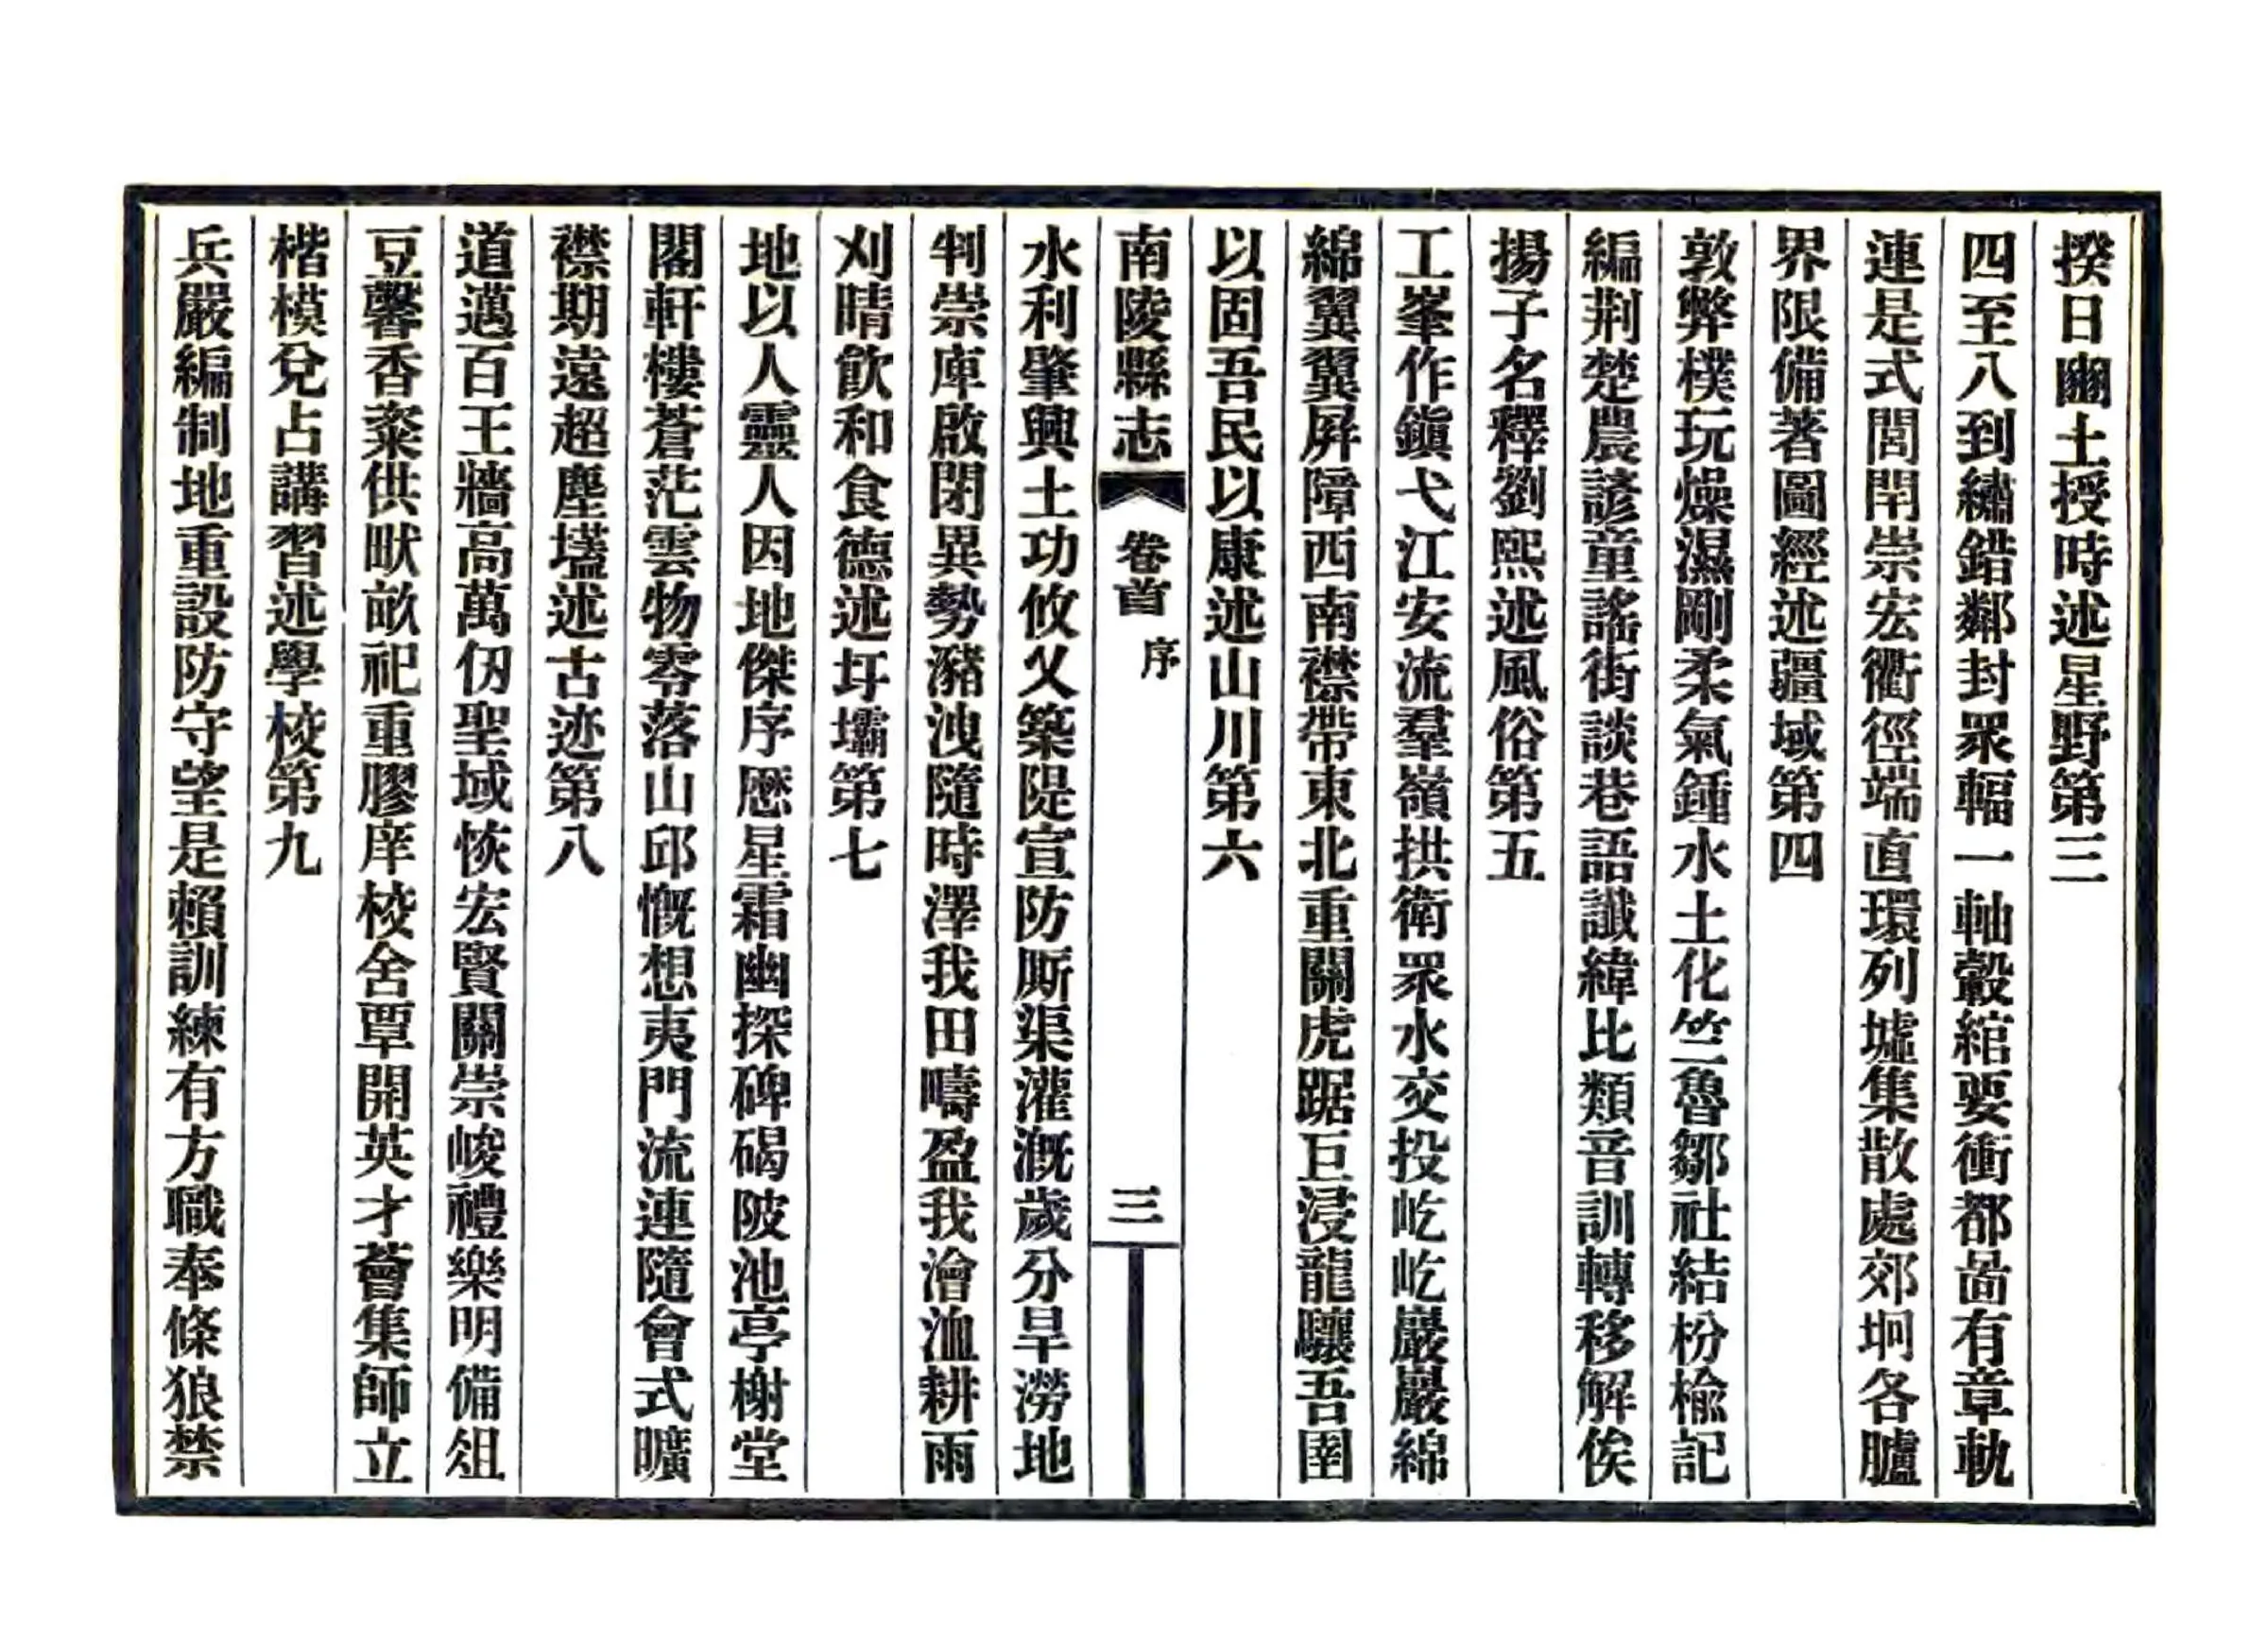 揆日圝土授時述星野第三
四至八到繡錯鄰封眾輻一軸轂綰要衝都啚有章軌
連是式閭閈崇宏衢徑端直環列墟集散處郊坰各臚
界限備著圖經述疆域第四
敦弊樸玩燥濕剛柔氣鍾水土化竺魯鄒社結枌楡記
編荆楚農諺童謠街談巷語讖緯比類音訓轉移解俟
揚子名釋劉熙述風俗第五
工峯作鎭弋江安流羣嶺拱衛眾水交投屹屹巖巖綿
綿翼翼屛障西南襟帶東北重關虎踞巨浸龍驤吾圉
以固吾民以康述山川第六
南陵縣志 卷首 序 三
水利肇興土功攸乂築隄宣防厮渠灌漑歲分旱澇地
判崇庳啟閉異勢瀦洩隨時澤我田疇盈我澮洫耕雨
刈晴飮和食德述圩壩第七
地以人靈人因地傑序厯星霜幽探碑碣陂池亭榭堂
閣軒樓蒼茫雲物零落山邱慨想夷門流連隨會式曠
襟期遠超塵壒述古迹第八
道邁百王牆高萬仞聖域恢宏賢關崇峻禮樂明備俎
豆馨香粢供畎畝祀重膠庠校舍覃開英才薈集師立
楷模兌占講習述學校第九
兵嚴編制地重設防守望是賴訓練有方職奉條狼禁